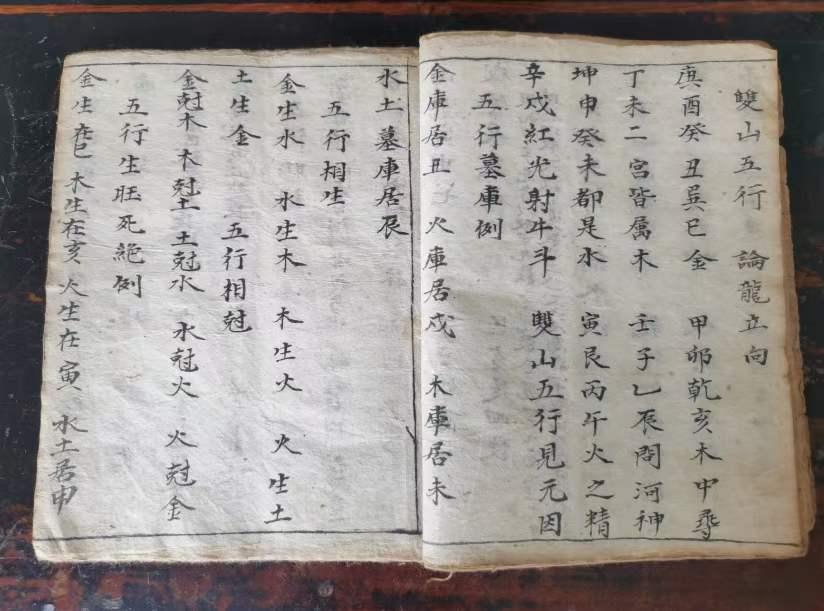 雙山五行 論龍立向
庚酉癸丑巽巳金 甲卯乾亥木中尋
丁未二宮皆属木 壬子乙辰問河神
坤申癸未都是水 寅艮丙午火之精
辛戍紅光射牛斗 雙山五行見元因
五行墓庫例
金庫居丑 火庫居戍 木庫居未
水土墓庫居辰
五行相生
金生水 水生木 木生火 火生土
土生金 五行相尅
金尅木 木尅土 土尅水 水尅火 火尅金
五行生旺死絕例
金生在巳 木生在亥 火生在寅 水土居申